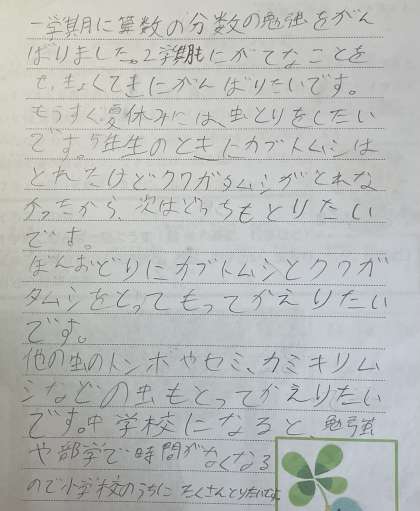 一学期に算数の分数の勉強をがん
ばりました。2学期もにがてなことを
せっきょくてきにがんばりたいです。
もうすぐ夏休みには、虫とりをしたい
です。5年生のときにカブトムシは
とれたけどクワガタムシがとれな
かったから、次はどっちもとりたい
です。
ぼんおどりにカブトムシとクワガ
タムシをとってもってかえりたい
です。
他の虫のトンボやセミ、カミキリム
シなどの虫もとってかえりたい
です。中学校になると、勉強
や部学で時間がなくなる
ので小学校のうちにたくさんとりたいです